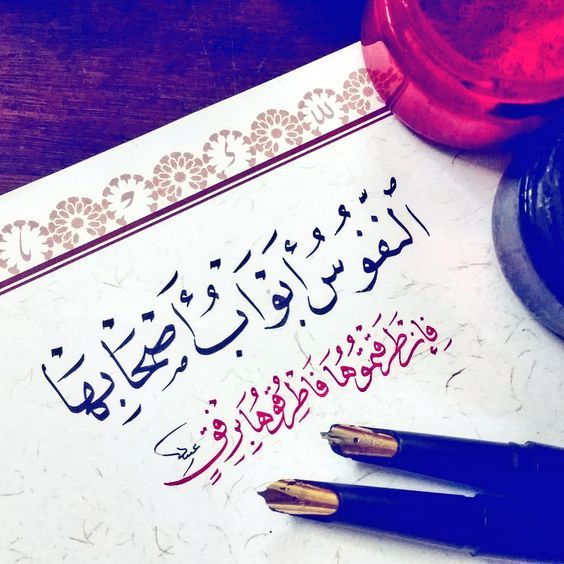 النُّفُوسُ أَبْوَابُ أَصْحَابِهَا
فَإِنْ طَرَقْتُمُوهَا فَاطْرُقُوهَا بِرِفْقٍ